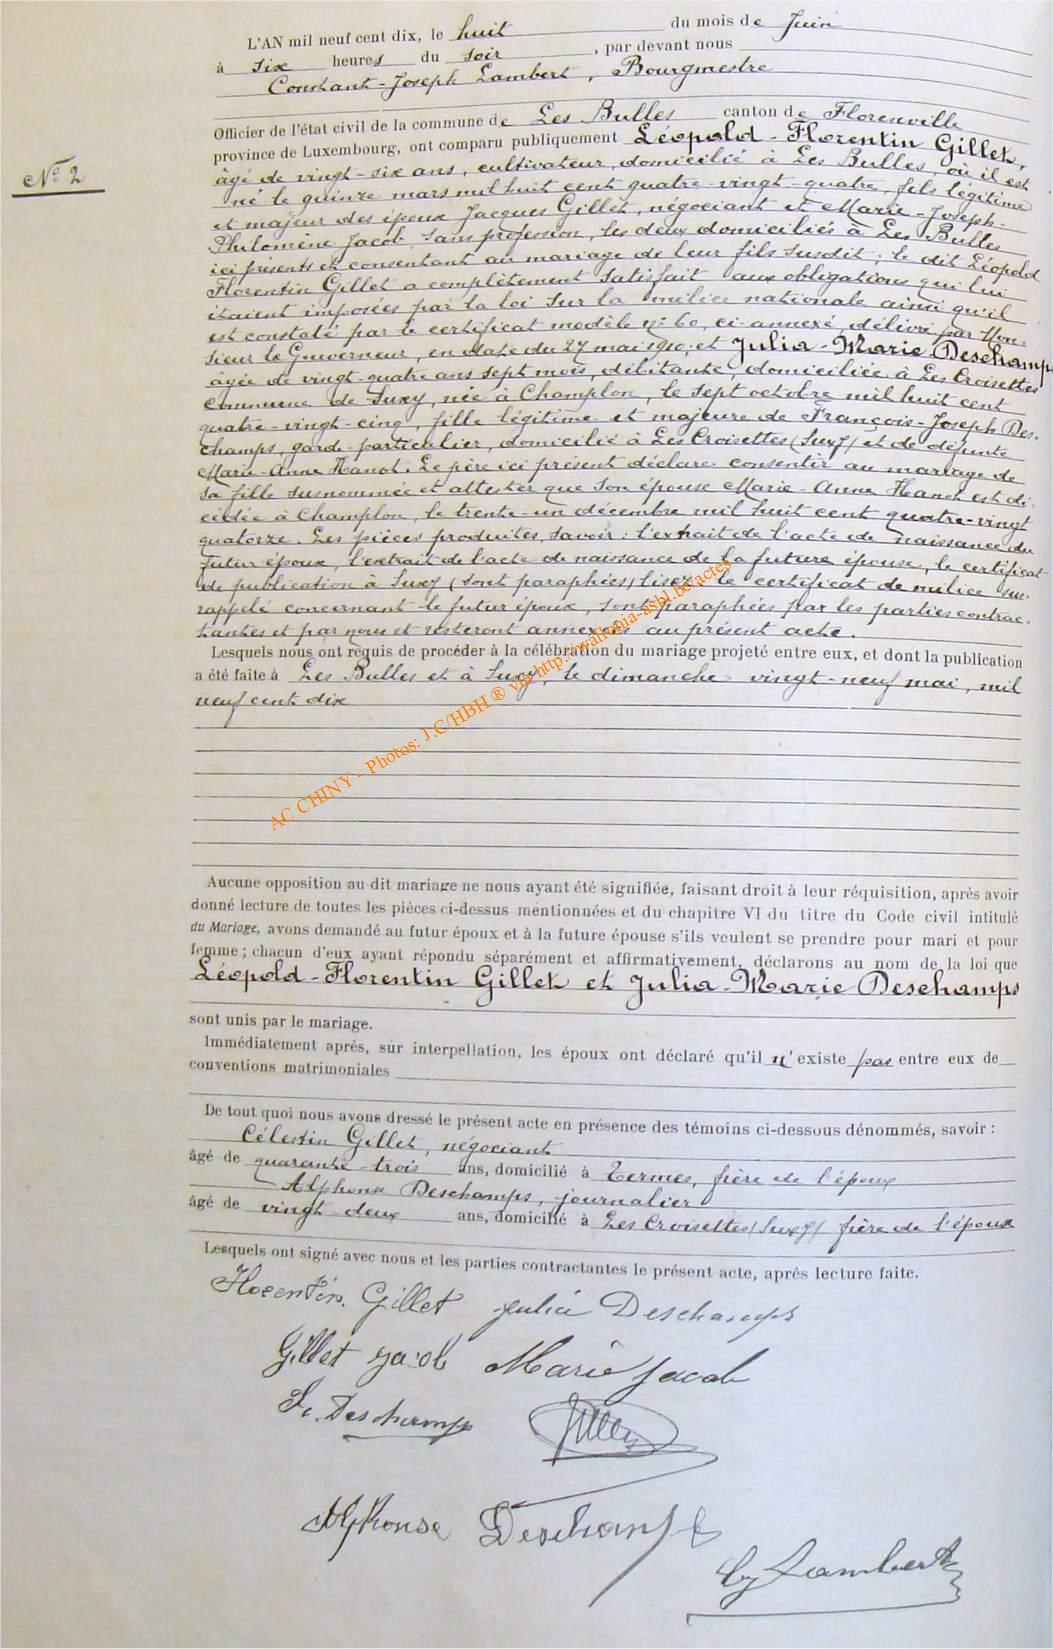 L'AN mil neuf cent dix, le huit du mois de Juin
à six heures du soir, par devant nous
Constant-Joseph Lambert, Bourgmestre
Officier de l'état civil de la commune de Les Bulles canton de Florenville
province de Luxembourg, ont comparu publiquement Léopold-Florentin Gillet,
N° 2
âgé de vingt-six ans, cultivateur, domicilié à Les Bulles, où il est
né le quinze mars mil huit cent quatre-vingt-quatre, fils légitime
et majeur des époux Jacques Gillet, négociant et Marie-Joseph-
Philomène Jacob, sans profession, les deux domiciliés à Les Bulles
ici présents et consentant au mariage de leur fils susdit; le dit Léopold
Florentin Gillet a complètement satisfait aux obligations qui lui
étaient imposées par la loi sur la milice nationale ainsi qu'il
est constaté par le certificat modèle n° 60, ci-annexé, délivré par Mon-
sieur le Gouverneur, en date du 27 mai 1910; et Julia-Marie Deschamps
âgée de vingt-quatre ans sept mois, débitante, domiciliée à Les Croisettes
commune de Suxy, née à Champlon, le sept octobre mil huit cent
quatre-vingt-cinq, fille légitime et majeure de François-Joseph Des-
champs, garde-particulier, domicilié à Les Croisettes (Suxy) et de défunte
Marie-Anne Hanot. Le père ici présent déclare consentir au mariage de
sa fille susnommée et attester que son épouse Marie-Anne Hanot est dé-
cédée à Champlon, le trente-un décembre mil huit cent quatre-vingt
quatorze. Les pièces produites, savoir: l'extrait de l'acte de naissance du
futur époux, l'extrait de l'acte de naissance de la future épouse, le certificat
de publication à Suxy (sont paraphées) lisez le certificat de milice sus-
rappelé concernant le futur époux, sont paraphées par les parties contrac-
tantes et par nous et resteront annexées au présent acte.
Lesquels nous ont requis de procéder à la célébration du mariage projeté entre eux, et dont la publication
a été faite à Les Bulles et à Suxy, le dimanche vingt-neuf mai, mil
neuf cent dix
AC CHINY - Photos: J.C/HBH ® via http://wallonia-asbl.be/actes
Aucune opposition au dit mariage ne nous ayant été signifiée, faisant droit à leur réquisition, après avoir
donné lecture de toutes les pièces ci-dessus mentionnées et du chapitre VI du titre du Code civil intitulé
du Mariage, avons demandé au futur époux et à la future épouse s'ils veulent se prendre pour mari et pour
femme; chacun d'eux ayant répondu séparément et affirmativement, déclarons au nom de la loi que
Léopold-Florentin Gillet et Julia-Marie Deschamps
sont unis par le mariage.
Immédiatement après, sur interpellation, les époux ont déclaré qu'il n'existe pas entre eux de
conventions matrimoniales
De tout quoi nous avons dressé le présent acte en présence des témoins ci-dessous dénommés, savoir:
Célestin Gillet, négociant
âgé de quarante-trois ans, domicilié à Termes, frère de l'époux
Alphonse Deschamps, journalier
âgé de vingt-deux ans, domicilié à Les Croisettes (Suxy) frère de l'épouse
Lesquels ont signé avec nous et les parties contractantes le présent acte, après lecture faite.
Florentin. Gillet Julia Deschamps
Gillet Jacob Marie Jacob
Deschamps Gillet
Alphonse Deschamps
Lambert